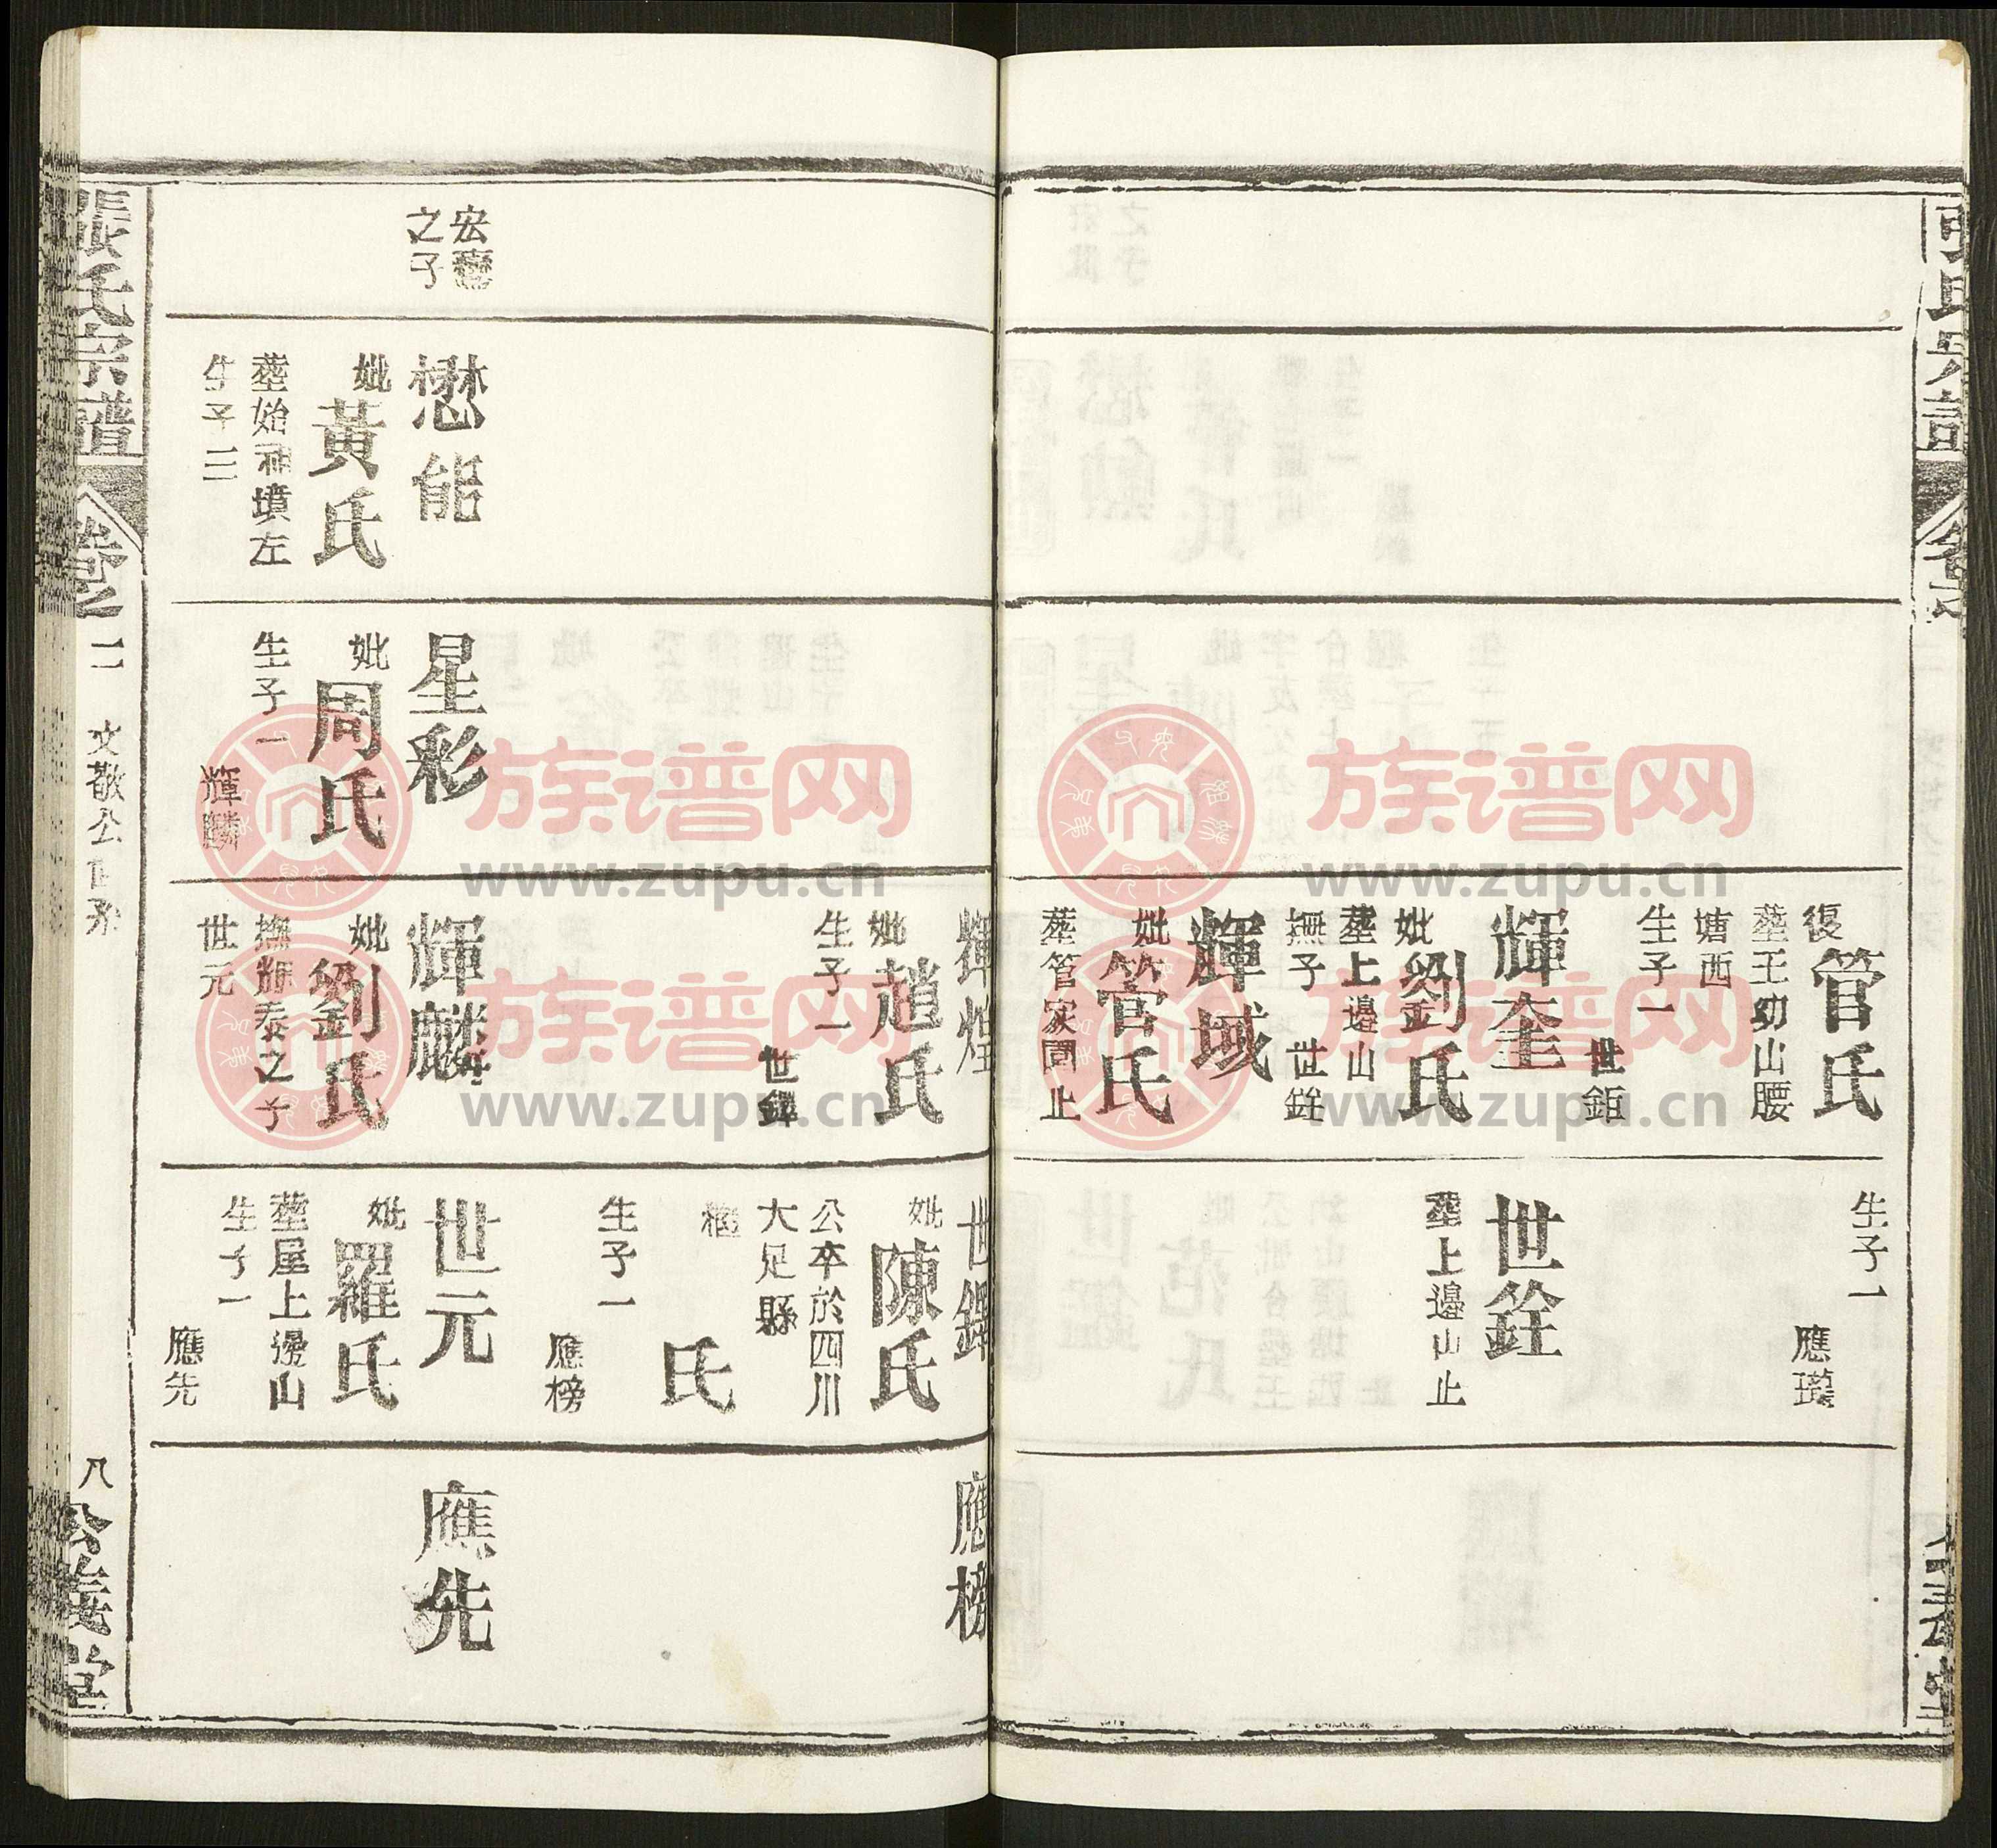 復管氏
塟王幼山腰
塘西
生子一
世鉅
輝奎
妣劉氏
塟上邉山
撫子 世銓
輝域
妣管氏
葬管家園止
生子一
應瑾
世銓
塟上邉山止
輝煌
妣趙氏
生子一
世鐸
世鐸
妣陳氏
公卒於四川
大足縣
氏
生子一
應榜
應榜
之子
懋能
妣黃氏
塟始神墳左
生子三
星彩
妣周氏
生子一
輝麟
輝麟
妣劉氏
撫輝泰之子
世元
世元
妣羅氏
塟屋上邊山
生子一
應先
應先
張氏宗譜
卷之二
文敬公
八
公義堂
族谱网
www.zupu.cn
族谱网
www.zupu.cn
族谱网
www.zupu.cn
族谱网
www.zupu.cn